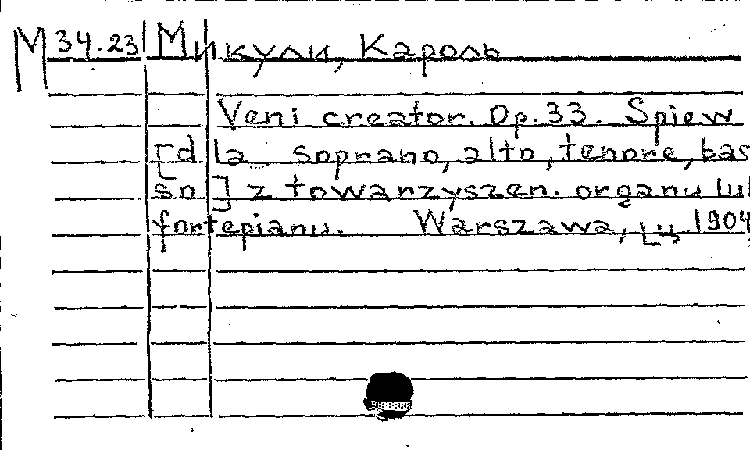 М 34.23 Микули, Кароль
Veni creator. Op. 33. Spiew
[dla soprano, alto, tenore, bas
so] z towarzyszen. organu lub
fortepianu. Warszawa, [ц. 1904